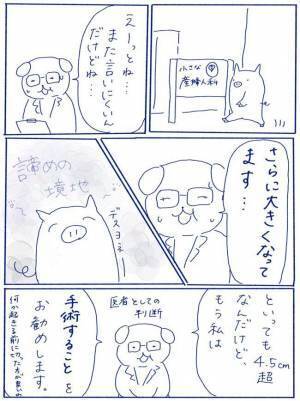 小さな
産婦人科
えーっとね…
また言いにくいん
だけどね…
さらに大きくなって
ます…
諦めの
境地
デスヨネ
といっても4.5cm超
なんだけど、
もう私は
医者としての
判断
手術することを
お勧めします。
何か起きる前に切った方が良いわ